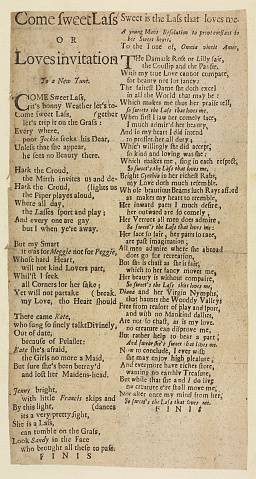 Come sweet Lass
OR
Loves invitation
To a New Tune.
COME Sweet Lass,
it's bonny Weather let's to-
Come sweet Lass, (gether
let's trip it on the Grass:
Every where,
poor Jockie seeks his Dear,
Unless that she appear,
he sees no Beauty there.
Hark the Croud,
the Minis invites us and de-
Hark the Croud, (lights us
the Piper plays aloud,
Where all day,
the Lasses sport and play;
And every one are gay
but I when ye'er away.
But my Smart
it was for Meggie not for Peggie,
Whose hard Heart,
will not kind Lovers part,
Whilst I seek
all Corners for her sake;
Yet will not partake (break
my Love, tho Heart should
There came Kate,
who sung so finely talkt Divinely,
Out of date,
because of
Kate she's afraid,
the Girl's no more a Maid,
But sure she's been betray'd
and lost her Maiden-head.
Jenny bright,
with little Francis skips and
By this light, (dances
its a very pretty sight,
She is a Lass,
can tumble on the Grass,
Look Sandy in the Face
who brought all these to pass.
FINIS
Sweet is the Lass that loves me.
A young Mans Resolution to prove constant to
his Sweet heart.
To the Tune of, Omnia vincit Amor,
THe Damask Rose or Lilly fair,
the Cowslip and the Pansie,
With my true Love cannot compare,
for beauty nor for fancy:
The fairest Dame she doth excel
in all the World that may be:
Which makes me thus her praise tell,
so sweet's the Lass that loves me.
When first I saw her comely face,
I much admir'd her beauty,
And in my heart I did intend
to proffer her all duty;
Which willingly she did accept,
so kind and loving was she:
Which makes me, sing in each respect,
So sweet's the Lass that loves me.
Bright Cynthia in her richest Robe,
my Love doth much resemble,
Whose beautious Beams such Rays afford
as makes my heart to tremble,
Her inward parts I much desire,
her outward are so comely,
Her Vertues all men doth admire,
So sweet's the Lass that loves me.
Her face so fair, her parts so rare,
are past imagination;
All men admire where she abroad
does go for recreation,
But she is chast as she is fair,
which to her fancy move me,
Her beauty is without compare,
So sweet's the Lass that loves me.
Diana and her Virgin Nymphs,
that haunts the Wooddy Valleys
Free from resort of play and sport,
and with no Mankind dallies,
Are not so chast, as is my love,
no creature can disprove me,
But rather help to bear a part;
And swear she's sweet that loves me.
Now to conclude, I ever wish
she may enjoy high pleasure
And evermore have riches store,
wanting no earthly Treasure,
But while that she and I do live
no creature e're shall move me,
Nor alter once my mind from her,
So sweet's the Lass that loves me.
FINIS